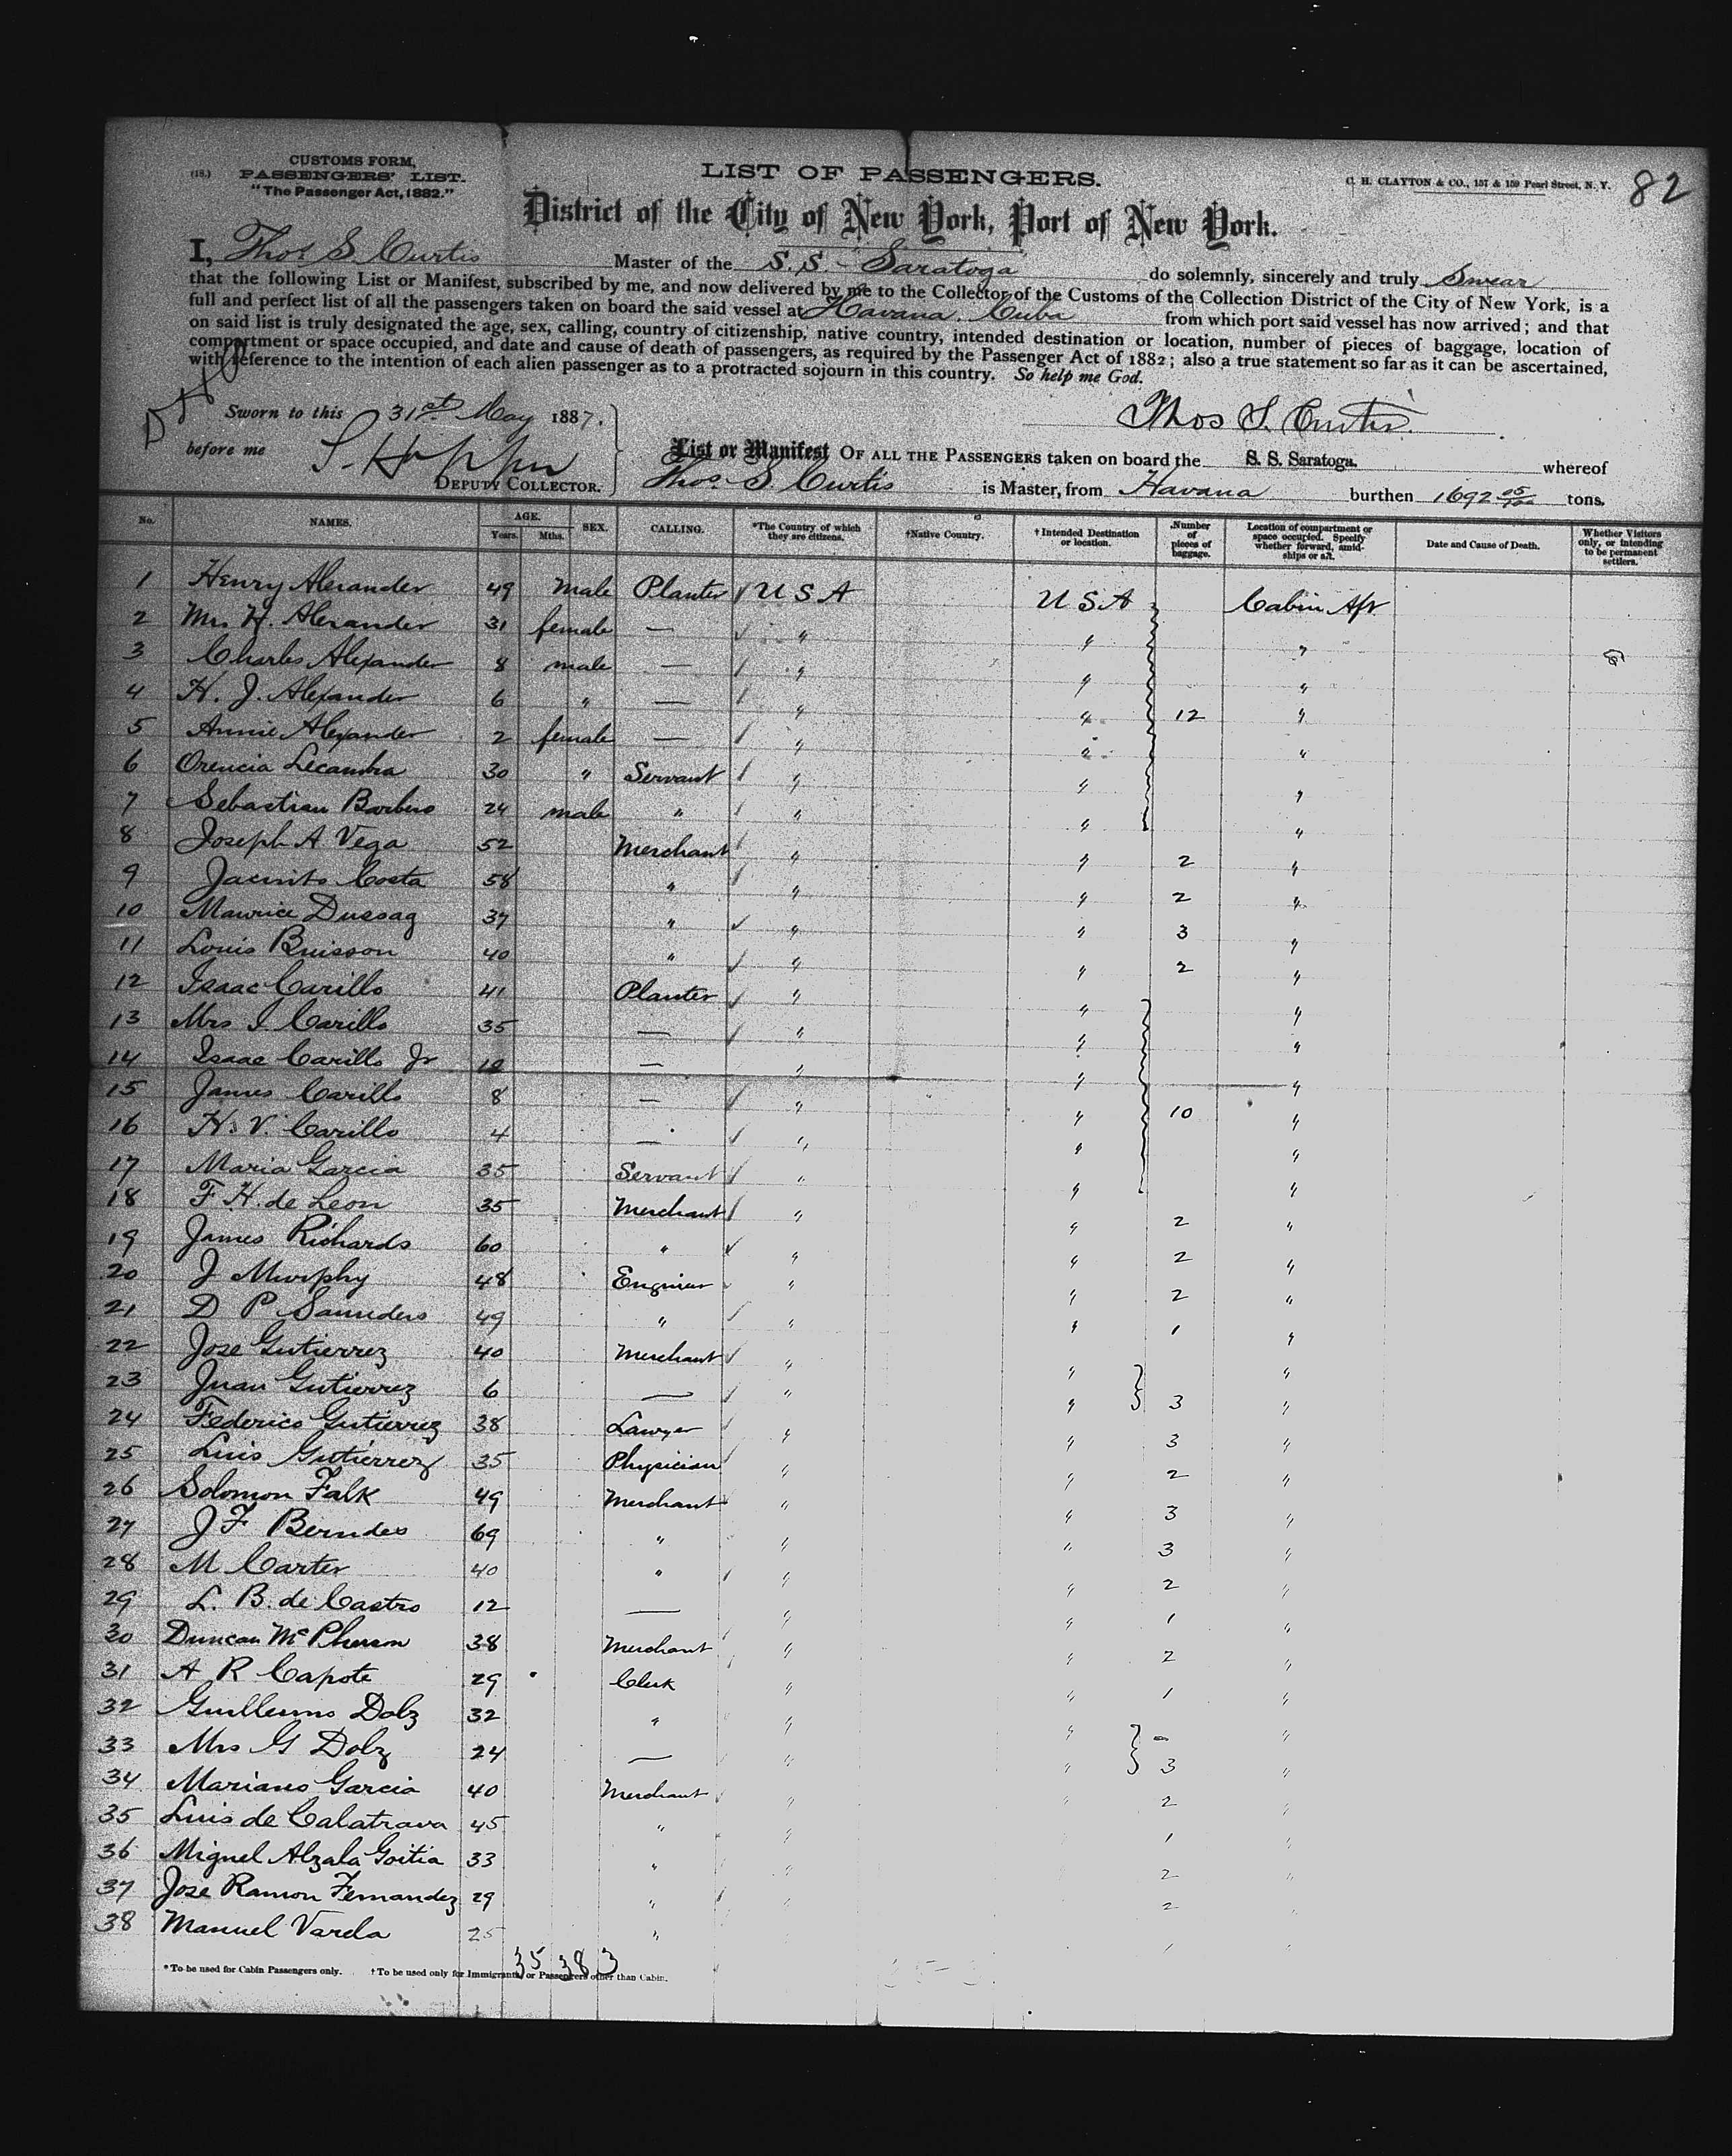 CUSTOMS FORM,
(18.) PASSENGERS' LIST.
"The Passenger Act, 1882."
LIST OF PASSENGERS.
C. H. CLAYTON & CO., 157 & 159 Pearl Street, N. Y.
82
District of the City of New York, Port of New York.
I, Thos S. Curtis Master of the S.S. Saratoga do solemnly, sincerely and truly Swear
that the following List or Manifest, subscribed by me, and now delivered by me to the Collector of the Customs of the Collection District of the City of New York, is a
full and perfect list of all the passengers taken on board the said vessel at Havana. Cuba from which port said vessel has now arrived; and that
on said list is truly designated the age, sex, calling, country of citizenship, native country, intended destination or location, number of pieces of baggage, location of
compartment or space occupied, and date and cause of death of passengers, as required by the Passenger Act of 1882; also a true statement so far as it can be ascertained,
with reference to the intention of each alien passenger as to a protracted sojourn in this country. So help me God.
Sworn to this 31st May 1887.
Thos S. Curtis.
before me
DEPUTY COLLECTOR.
List or Manifest OF ALL THE PASSENGERS taken on board the S. S. Saratoga. whereof
Thos. S. Curtis is Master, from Havana burthen 1692 05/100 tons.
No. NAMES. AGE. Years. Mths. SEX. CALLING. *The Country of which they are citizens. †Native Country. †Intended Destination or location. Number of pieces of baggage. Location of compartment or space occupied. Specify whether forward, amidships or aft. Date and Cause of Death. Whether Visitors only, or intending to be permanent settlers.
1 Henry Alexander 49 Male Planter U S A U S A Cabin Aft
2 Mrs H. Alexander 31 female — " " "
3 Charles Alexander 8 male — " " "
4 H. J. Alexander 6 " — " " 12 "
5 Annie Alexander 2 female — " " "
6 Orencia Lecambra 30 " Servant " " "
7 Sebastian Barbero 24 male " " " "
8 Joseph A Vega 52 Merchant " " 2 "
9 Jacinto Costa 58 " " " 2 "
10 Maurice Dussaq 37 " " " 3 "
11 Louis Buisson 40 " " " 2 "
12 Isaac Carillo 41 Planter " " "
13 Mrs I Carillo 35 — " " "
14 Isaac Carillo Jr — " " "
15 James Carillo 8 — " " 10 "
16 H. V. Carillo 4 — " " "
17 Maria Garcia 35 Servant " " "
18 F H. de Leon 35 Merchant " " 2 "
19 James Richards 60 " " " 2 "
20 J Murphy 48 Engineer " " 2 "
21 D P Saunders 49 " " " 1 "
22 Jose Gutierrez 40 Merchant " " "
23 Juan Gutierrez 6 — " " 3 "
24 Federico Gutierrez 38 Lawyer " " 3 "
25 Luis Gutierrez 35 Physician " " 2 "
26 Solomon Falk 49 Merchant " " 3 "
27 J F Berndes 69 " " " 3 "
28 M Carter 40 " " " 2 "
29 L. B. de Castro 12 — " " 1 "
30 Duncan McPherson 38 Merchant " " 2 "
31 A R Capote 29 Clerk " " 1 "
32 Guillermo Dolz 32 " " " "
33 Mrs G Dolz 24 — " " 3 "
34 Mariano Garcia 40 Merchant " " 2 "
35 Luis de Calatrava 45 " " 1 "
36 Miguel Alzala Goitia 33 " " 2 "
37 Jose Ramon Fernandez 29 " " 2 "
38 Manuel Varela 25 " 1 "
35 38 3
*To be used for Cabin Passengers only. †To be used only for Immigrants, or Passengers other than Cabin.